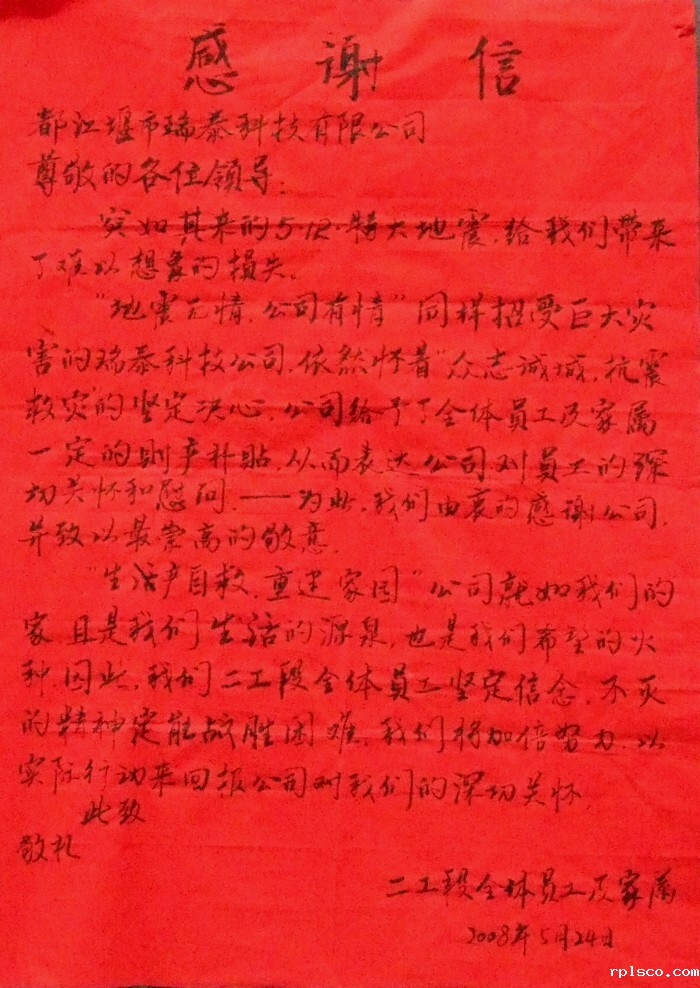 感谢信
都江堰市瑞泰科技有限公司
尊敬的各位领导:
突如其来的5·12·特大地震,给我们带来
了难以想象的损失。
“地震无情,公司有情”同样招受巨大灾
害的瑞泰科技公司,依然怀着“众志诚城,抗震
救灾”的坚定决心,公司给予了全体员工及家属
一定的财产补贴,从而表达公司对员工的深
切关怀和慰问,——为此,我们由衷的感谢公司,
并致以最崇高的敬意。
“生活产自救,重建家园”公司就如我们的
家且是我们生活的源泉,也是我们希望的火
种,因此,我们二工段全体员工坚定信念,不灭
的精神定能战胜困难,我们将加倍努力,以
实际行动来回报公司对我们的深切关怀,
此致
敬礼
二工段全体员工及家属
2008年5月24日
rplsco.com